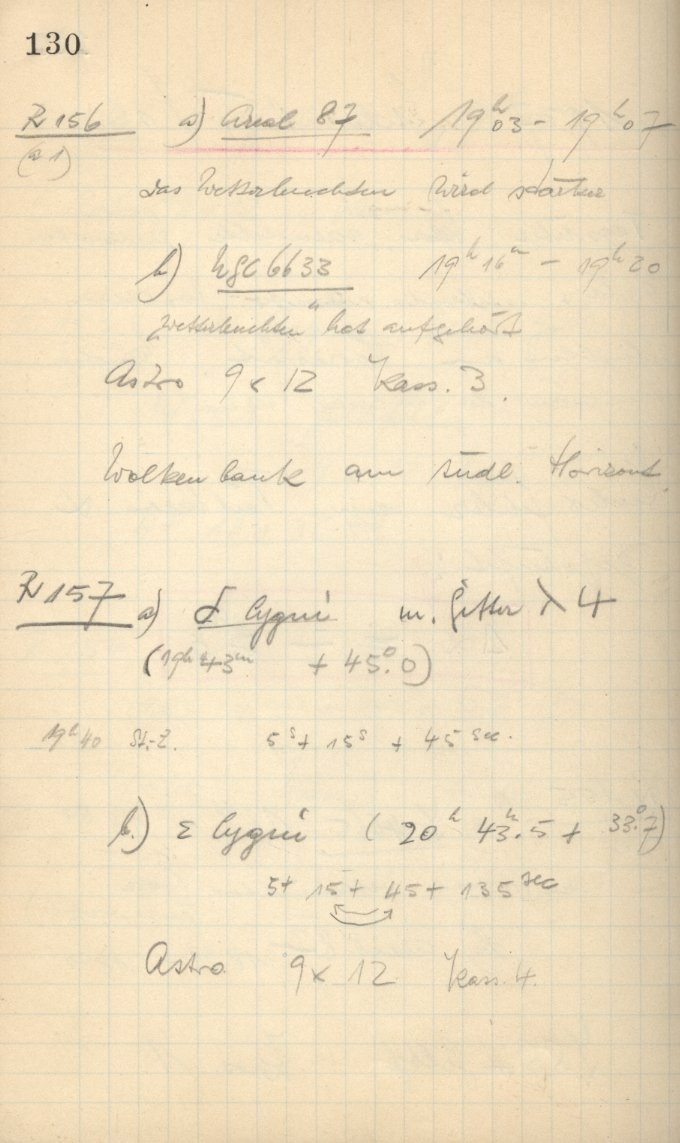 130
Pl 156 a) Areal 87 19h 03 - 19h 07
(a 1)
Das Wetterleuchten wird stärker
b) NGC 6633 19h 16m - 19h 20
"Wetterleuchten" hat aufgehört
Astro 9 x 12 Kass. 3.
Wolkenbank am südl. Horizont.
Pl 157 a) δ Cygni m. Gitter λ 4
(19h 43m + 45°.0)
19h 40 St.-Z. 5s + 15s + 45 sec.
b.) ε Cygni (20h 43h.5 + 33°.7)
5+ 15+ 45+ 135 sec
Astro 9x 12 Kass. 4.